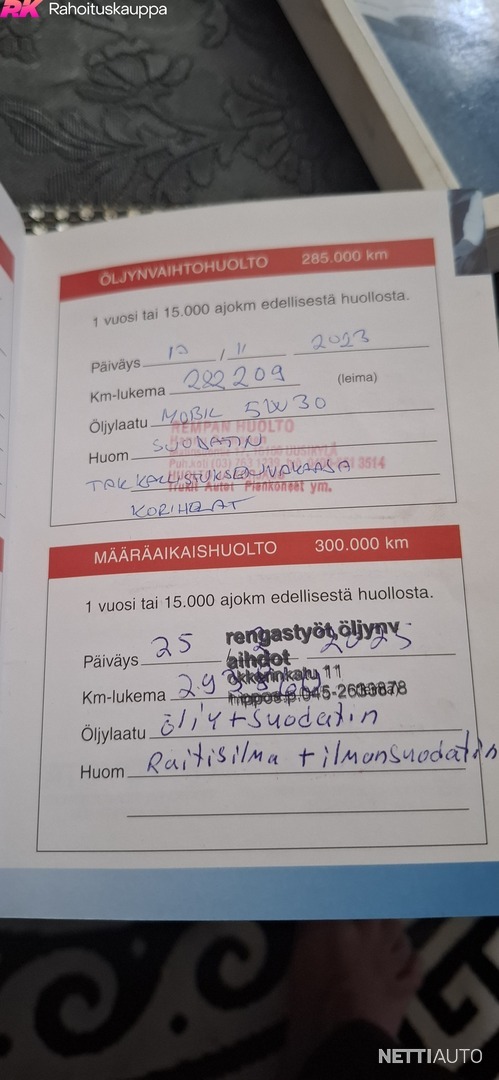 RK Rahoituskauppa
ÖLJYNVAIHTOHUOLTO 285.000 km
1 vuosi tai 15.000 ajokm edellisestä huollosta.
Päiväys 17 / 11 2023
Km-lukema 282 209 (leima)
Öljylaatu MOBIL 5W30
REMPAN HUOLTO
Huom SUODATIN
UUSIKYLÄ
3514
TAK KALLISTUKSENVAKAAJA
Autot Pienkoneet ym.
KORIHELAT
MÄÄRÄAIKAISHUOLTO 300.000 km
1 vuosi tai 15.000 ajokm edellisestä huollosta.
rengastyöt,öljynv
Päiväys 25 2025
aihdot
11
Km-lukema
Öljylaatu öliy + suodatin
Huom Raitisilma + ilmansuodatin
NETTIAUTO